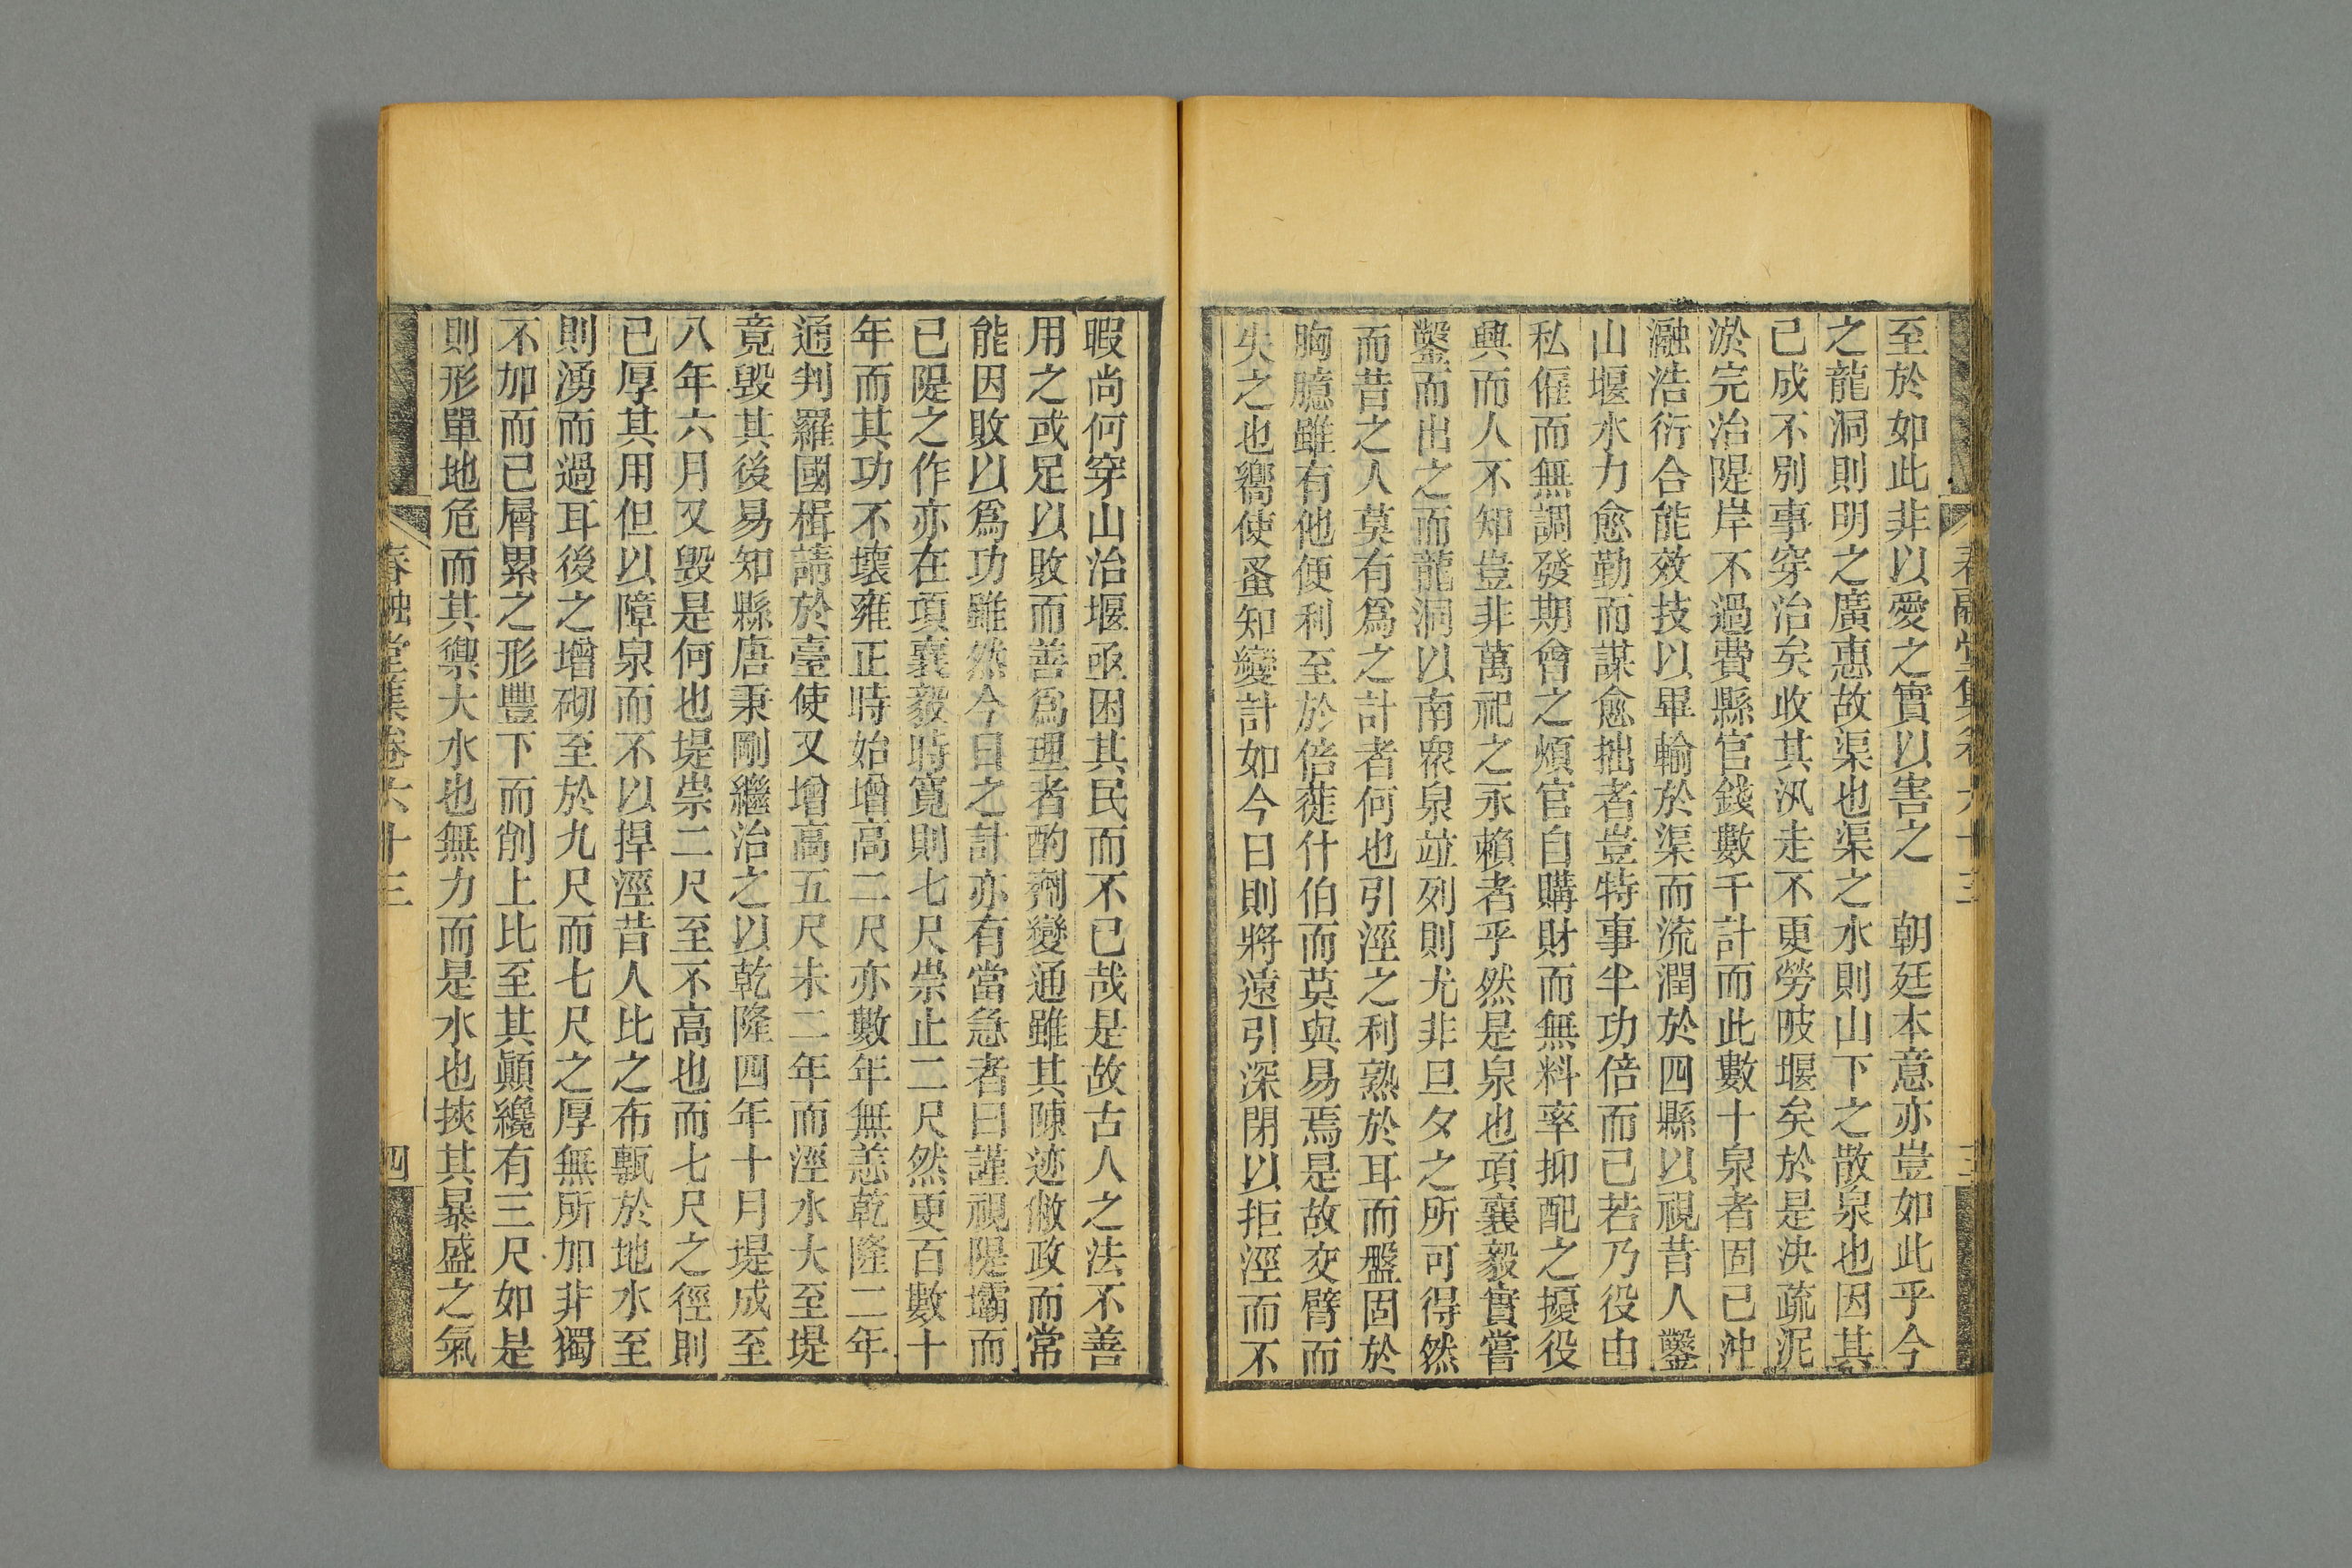 至於如此非以愛之實以害之　朝廷本意亦豈如此乎今
之龍洞則明之廣惠故渠也渠之水則山下之散泉也因其
已成不別事穿治矣收其汎走不更勞陂堰矣於是決疏泥
淤完治隄岸不過費縣官錢數千計而此數十泉者固已沖
瀜浩衍合能效技以畢輸於渠而流潤於四縣以視昔人鑿
山堰水力愈勤而謀愈拙者豈特事半功倍而已若乃役由
私僱而無調發期會之煩官自購財而無料率抑配之擾役
興而人不知豈非萬祀之永賴者乎然是泉也項襄毅實嘗
鑿而出之而龍洞以南衆泉竝列則尤非旦夕之所可得然
而昔之人莫有爲之計者何也引涇之利熟於耳而盤固於
胸臆雖有他便利至於倍蓰什伯而莫與易焉是故交臂而
失之也嚮使蚤知變計如今日則將遠引深閉以拒涇而不
暇尚何穿山治堰亟困其民而不已哉是故古人之法不善
用之或足以敗而善爲理者酌劑變通雖其陳迹敝政而常
能因敗以爲功雖然今日之計亦有當急者曰謹視隄壩而
已隄之作亦在項襄毅時寬則七尺崇止二尺然更百數十
年而其功不壞雍正時始增高二尺亦數年無恙乾隆二年
通判羅國楫請於臺使又增高五尺未二年而涇水大至堤
竟毀其後易知縣唐秉剛繼治之以乾隆四年十月堤成至
八年六月又毀是何也堤崇二尺至不高也而七尺之徑則
已厚其用但以障泉而不以捍涇昔人比之布甎於地水至
則湧而過耳後之增砌至於九尺而七尺之厚無所加非獨
不加而已層累之形豐下而削上比至其顚纔有三尺如是
則形單地危而其禦大水也無力而是水也挾其暴盛之氣
春融堂集卷六十三
四